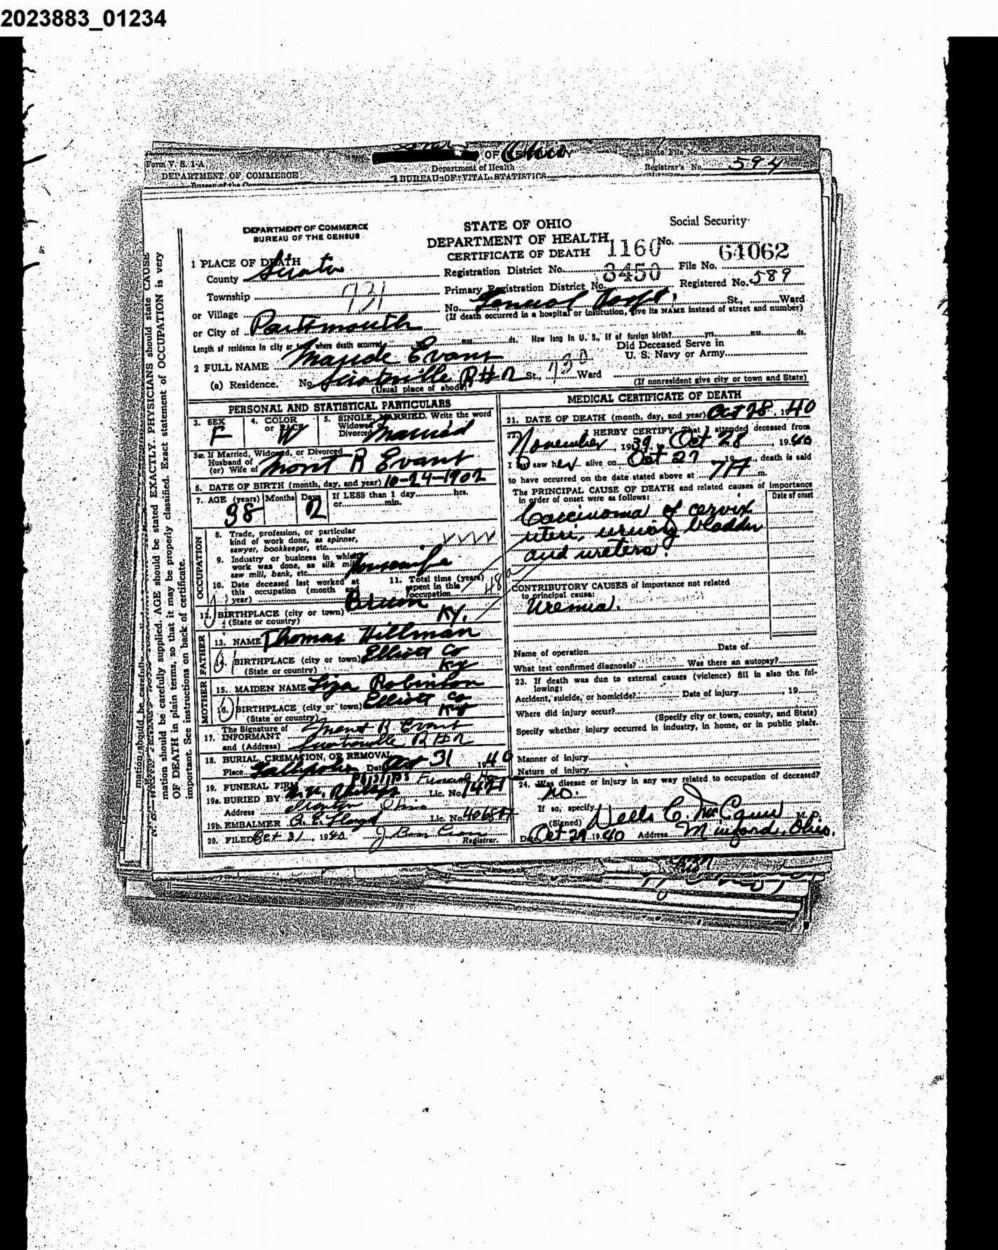 2023883_01234
OF Ohio
Form V. S. 1-A
DEPARTMENT OF COMMERCE
Department of Health
BUREAU OF VITAL STATISTICS
Registrar's No. 594
DEPARTMENT OF COMMERCE
BUREAU OF THE CENSUS
STATE OF OHIO
DEPARTMENT OF HEALTH
CERTIFICATE OF DEATH
Social Security
No.
1160
64062
1 PLACE OF DEATH
County Scioto
Registration District No.
File No.
Township
731
Primary Registration District No. 3450
Registered No. 589
or Village
No. General Hospt. St., Ward
(If death occurred in a hospital or institution, give its NAME instead of street and number)
or City of Portsmouth
Length of residence in city or town where death occurred yrs. mos. ds. How long in U. S., if of foreign birth? yrs. mos. ds.
2 FULL NAME Maude Evans
Did Deceased Serve in
U. S. Navy or Army
(a) Residence. No. Sciotoville R#2 St., 730 Ward
(Usual place of abode) (If nonresident give city or town and State)
PERSONAL AND STATISTICAL PARTICULARS
3. SEX F
4. COLOR or RACE W
5. SINGLE, MARRIED, Write the word
Widowed
Divorced Married
5a. If Married, Widowed, or Divorced
Husband of
(or) Wife of Mont R Evans
6. DATE OF BIRTH (month, day, and year) 10-24-1902
7. AGE (years) Months Days If LESS than 1 day hrs.
or min.
38 2
OCCUPATION
8. Trade, profession, or particular
kind of work done, as spinner,
sawyer, bookkeeper, etc.
9. Industry or business in which
work was done, as silk mill,
saw mill, bank, etc. Housewife
10. Date deceased last worked at
this occupation (month
year)
11. Total time (years)
spent in this
occupation
12. BIRTHPLACE (city or town)
(State or country) Ky.
FATHER
13. NAME Thomas Hillman
14. BIRTHPLACE (city or town) Elliott Co
(State or country) Ky
MOTHER
15. MAIDEN NAME Liza Robinson
16. BIRTHPLACE (city or town) Elliott Co
(State or country) Ky
17. The Signature of
INFORMANT Mont R Evans
and (Address) Sciotoville R#2
18. BURIAL, CREMATION, OR REMOVAL
Place Date Oct 31 1940
19. FUNERAL FIRM
19a. BURIED BY Lic. No. 1421
Address Ohio
19b. EMBALMER Lic. No.
20. FILED Oct 31 1940
Registrar.
MEDICAL CERTIFICATE OF DEATH
21. DATE OF DEATH (month, day, and year) Oct 28, 1940
22. I HERBY CERTIFY, That I attended deceased from
November 1939, Oct 28 1940
I last saw her alive on Oct 27 19 death is said
to have occurred on the date stated above at 7 A m.
The PRINCIPAL CAUSE OF DEATH and related causes of importance
in order of onset were as follows:
Date of onset
Carcinoma of cervix
uteri, urinary bladder
and ureters.
CONTRIBUTORY CAUSES of importance not related
to principal cause:
Uremia.
Name of operation Date of
What test confirmed diagnosis? Was there an autopsy?
23. If death was due to external causes (violence) fill in also the following:
Accident, suicide, or homicide? Date of injury 19
Where did injury occur?
(Specify city or town, county, and State)
Specify whether injury occurred in industry, in home, or in public place.
Manner of injury
Nature of injury
24. Was disease or injury in any way related to occupation of deceased?
No.
If so, specify
(Signed) M. D.
Date Oct 29 1940 Address Minford, Ohio.
mation should be carefully supplied. AGE should be stated EXACTLY. PHYSICIANS should state CAUSE
OF DEATH in plain terms, so that it may be properly classified. Exact statement of OCCUPATION is very
important. See instructions on back of certificate.